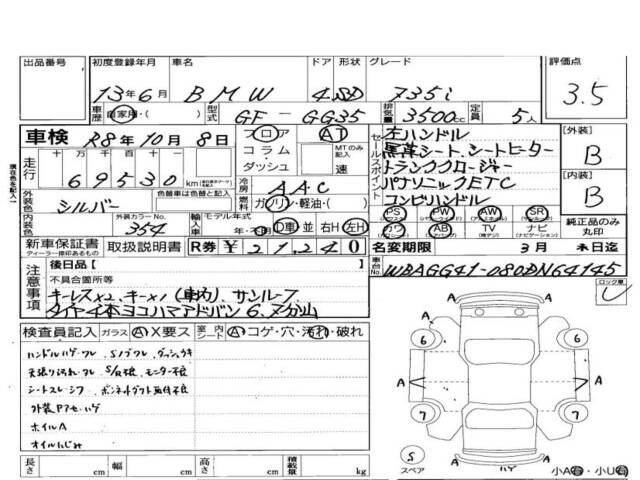 出品番号 初度登録年月 車名 ドア 形状 グレード 評価点
13年6月 BMW 4 SD 735i 3.5
車歴 自家用・( ) 型式 GF-GG35 排気量 3500cc 定員 5人
車検 R8年10月8日 フロア コラム ダッシュ AT MTのみ記入 速
セールスポイント
左ハンドル
黒革シート、シートヒーター
トランククロージャー
パナソニックETC
コンビハンドル
[外装] B
[内装] B
走行 十 万 千 百 十 一
69530 km
冷房 AAC
燃料 ガソリン・軽油・( )
外装色 シルバー 色替車は色替と記入
内装色 外装カラーNo. 354
輸入車 モデル年式 年・不明 D車 並 右H 左H
PS PW AW SR
カワ AB TV ナビ
純正品のみ丸印
新車保証書 取扱説明書 R券 ¥21240
ディーラー捺印あるもの
名変期限 3月 末日迄
車台No. WBAGG41-080DN64145
注意事項 後日品〔 〕
不具合箇所等
キーレスx2、キーx1(車内)、サンルーフ
タイヤ4本ヨコハマアドバン6、7分山
検査員記入 ガラス A X要ス 室内シート A コゲ・穴・汚れ・破れ
ハンドルハゲ・ワレ、Sノブワレ、ダッシュウキ
天張り汚れ・ワレ、S/R不良、モニター不良
シートスレ・シワ
外装Pアセ・ハゲ
ホイルA
オイルにじみ
ロック有
6 6
A A A A
7 7
S
スペア
ハゲ
小A有・小U有
長さ cm 幅 cm 高さ cm 積載量 kg